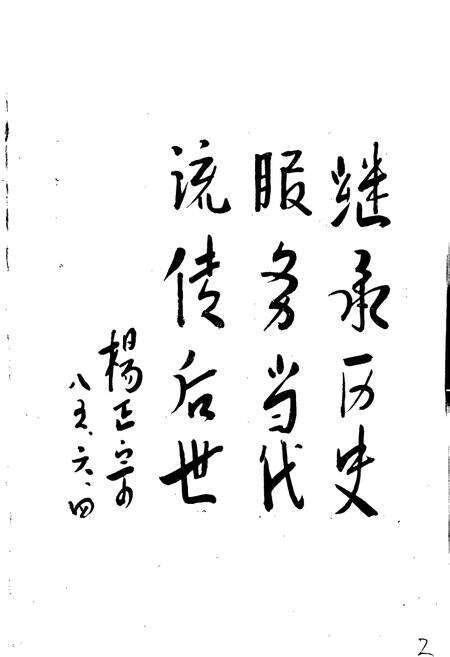 继承历史
服务当代
流传后世
杨正宗
八五、六、四
2